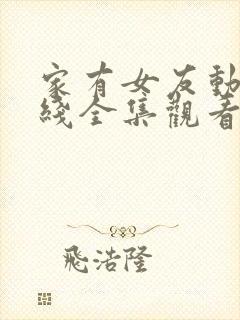 家有女友動
綫全集觀看
飛浩隆